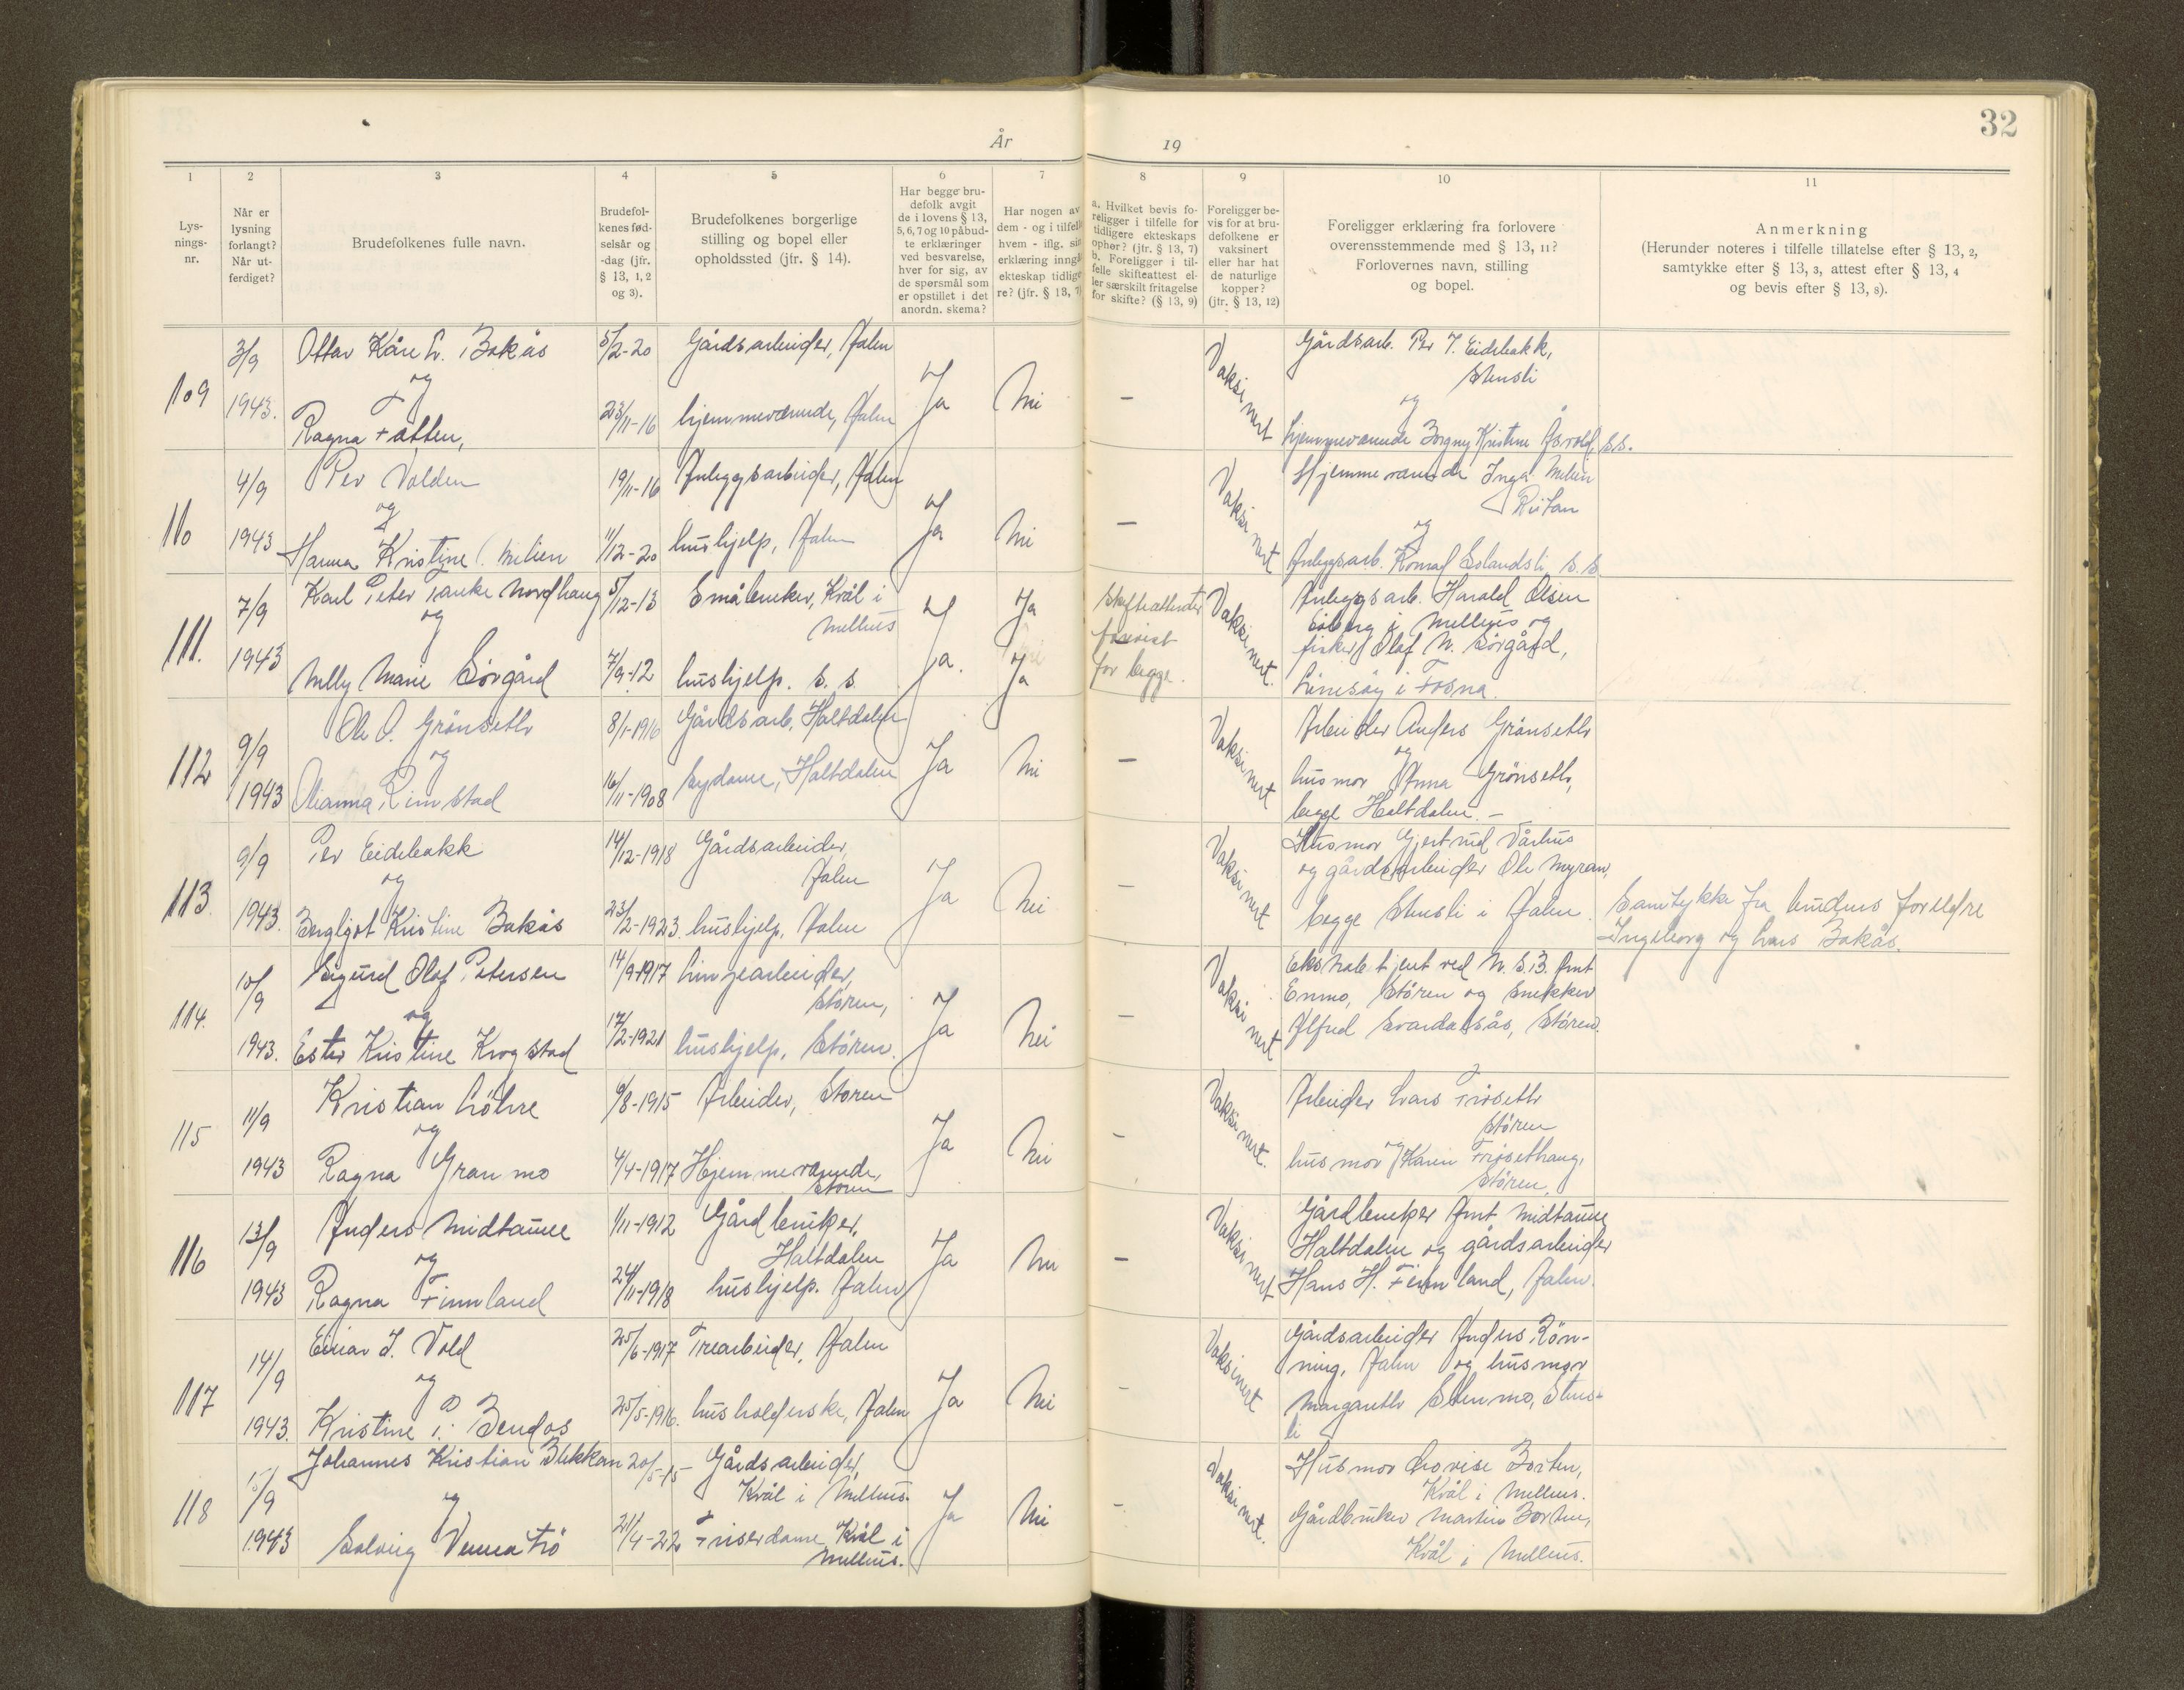 32
År 19
1
Lys-
nings-
nr.
2
Når er
lysning
forlangt?
Når ut-
ferdiget?
3
Brudefolkenes fulle navn.
4
Brudefol-
kenes fød-
selsår og
-dag (jfr.
§ 13, 1, 2
og 3).
5
Brudefolkenes borgerlige
stilling og bopel eller
opholdssted (jfr. § 14).
6
Har begge bru-
defolk avgit
de i lovens § 13,
5, 6, 7 og 10 påbud-
te erklæringer
ved besvarelse,
hver for sig, av
de spørsmål som
er opstillet i det
anordn. skema?
7
Har nogen av
dem - og i tilfelle
hvem - iflg. sin
erklæring inngå
ekteskap tidlige-
re? (jfr. § 13, 7)
8
a. Hvilket bevis fo-
religger i tilfelle for
tidligere ekteskaps
ophør? (jfr. § 13, 7)
b. Foreligger i til-
felle skifteattest el-
ler særskilt fritagelse
for skifte? (§ 13, 9)
9
Foreligger be-
vis for at bru-
defolkene er
vaksinert
eller har hat
de naturlige
kopper?
(jfr. § 13, 12)
10
Foreligger erklæring fra forlovere
overensstemmende med § 13, 11?
Forlovernes navn, stilling
og bopel.
11
Anmerkning
(Herunder noteres i tilfelle tillatelse efter § 13, 2,
samtykke efter § 13, 3, attest efter § 13, 4
og bevis efter § 13, 8).
109
3/9
1943.
Ottar Kåre L. Bakås
og
Ragna Fatten,
5/2-20
23/11-16
Gårdsarbeider, Ålen
hjemmeværende, Ålen
Ja
Nei
-
Vaksinert
Gårdsarb. Per J. Eidsbakk,
Stensli
og
hjemmeværende Borgny Kristine Åsvold, s.s.
110
4/9
1943
Per Volden
og
Hanna Kristine Melien
19/11-16
11/12-20
Anleggsarbeider, Ålen
hushjelp, Ålen
Ja
Nei
-
Vaksinert
Hjemmeværende Inga Melien
Reitan
og
Anleggsarb. Konrad s.s.
111.
7/9
1943
Karl Peter Tanke Nordhaug
og
Nelly Marie Sörgård
5/12-13
7/9-12
Småbruker, Kvål i
Melhus
hushjelp. s. s.
Ja.
Ja
Ja
Skifteattester
forevist
for begge.
Vaksinert.
Anleggsarb. Harald Olsen
Eiberg i Melhus og
fisker Olaf N. Sörgård,
Linesöy i Fosna.
112
9/9
1943
Ole O. Grönseth
og
Olianna Rimstad
8/1-1916
16/11-1908
Gårdsarb. Haltdalen
Sydame, Haltdalen
Ja
Nei
-
Vaksinert
Arbeider Anders Grönseth
og
husmor Anna Grönseth,
begge Haltdalen. -
113
9/9
1943.
Per Eidsbakk
og
Bergljot Kristine Bakås
14/12-1918
23/2-1923.
Gårdsarbeider,
Ålen
hushjelp, Ålen
Ja
Nei
-
Vaksinert
Husmor Gjertrud Vårhus
og gårdsarbeider Ole Myran,
begge Stensli i Ålen.
Samtykke fra brudens foreldre
Ingeborg og Lars Bakås.
114.
10/9
1943.
Sigurd Olaf Petersen
og
Ester Kristine Krogstad
14/9-1917
17/2-1921
Linjearbeider,
Stören,
hushjelp, Stören.
Ja
Nei
-
Vaksinert
Ekstrabetjent ved N.S.B. Arnt
Enmo, Stören og snekker
Alfred Svardalsås, Stören.
115
11/9
1943
Kristian Löhre
og
Ragna Granmo
6/8-1915
4/4-1917
Arbeider, Stören
Hjemmeværende,
Stören
Ja
Nei
-
Vaksinert.
Arbeider Lars Fröseth
Stören
og
husmor Karen Frösethaug,
Stören.
116
13/9
1943
Anders Midtaune
og
Ragna Finnland
1/11-1912
24/11-1918
Gårdbruker,
Haltdalen
hushjelp. Ålen
Ja
Nei
-
Vaksinert
Gårdbruker Arnt Midtaune
Haltdalen og gårdsarbeider
Hans H. Finnland, Ålen.
117
14/9
1943.
Einar J. Vold
og
Kristine P. Bendos
25/6-1917
25/5-1916.
Trearbeider, Ålen
husholderske, Ålen
Ja
Nei
-
Vaksinert
Gårdsarbeider Anders Rön-
ning, Ålen og husmor
Margareth Stenmo, Stens-
li
118
15/9
1943
Johannes Kristian Blekkan
og
Solveig Vennatrö
20/5-15
21/4-22
Gårdsarbeider,
Kvål i Melhus.
Friserdame, Kvål i
Melhus.
Ja
Nei
-
Vaksinert.
Husmor Lovise Borten,
Kvål i Melhus.
Gårdbruker Martin Borten,
Kvål i Melhus.